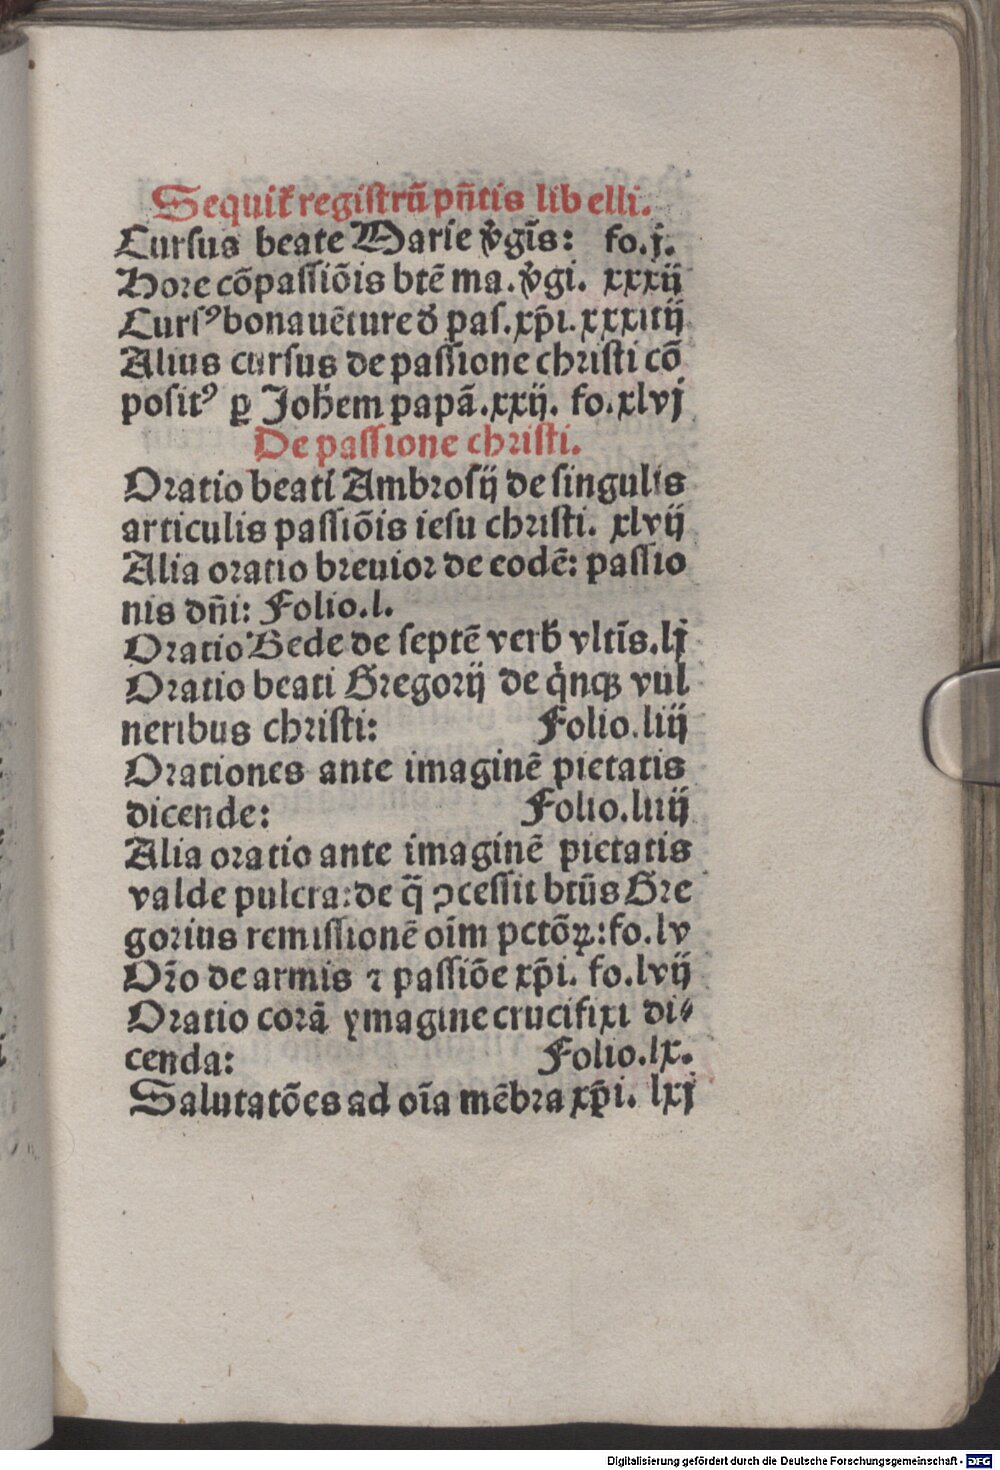 Sequit᷑ regiſtrū pn̄tis libelli.
Curſus beate Marie v̓gīs: fo.j.
Hore cōpaſſiōis btē ma.v̓gi. xxxij
Curſꝰ bonauēture đ paſ.xp̄i.xxxiiij
Alius curſus de paſſione chriſti cō
poſitꝰ ꝑ Joh̄em papā.xxij. fo.xlvj
De paſſione chriſti.
Oratio beati Ambroſij de ſingulis
articulis paſſiōis ieſu chriſti. xlvij
Alia oratio breuior de eodē: paſſio
nis dn̄i: Folio.l.
Oratio Bede de ſeptē verb̄ vltīs.lj
Oratio beati Gregorij de q̇nqꝫ vul
neribus chriſti: Folio.liij
Orationes ante imaginē pietatis
dicende: Folio.liiij
Alia oratio ante imaginē pietatis
valde pulcra:de q̄ ꝯceſſit btūs Gre
gorius remiſſionē oīm pctōꝝ:fo.lv
Or̄o de armis ⁊ paſſiōe xp̄i. fo.lvij
Oratio corā ymagine crucifixi di⸗
cenda: Folio.lx.
Salutatōes ad oīa mēbra xp̄i. lxj
Digitalisierung gefördert durch die Deutsche Forschungsgemeinschaft - DFG